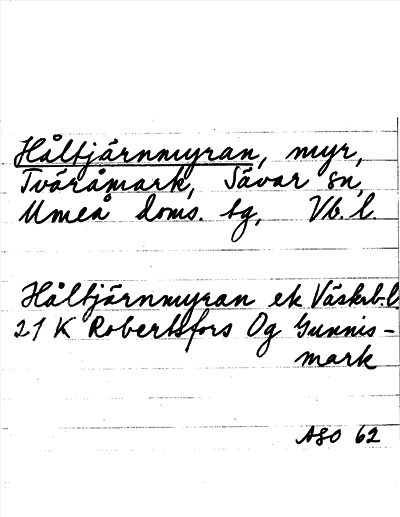 Håltjärnmyran, myr,
Tväråmark, Sävar sn,
Umeå doms. tg, Vb. l.
Håltjärnmyran ek Västerb. l
21 K Robertsfors Og Gunnis-
mark
ASO 62